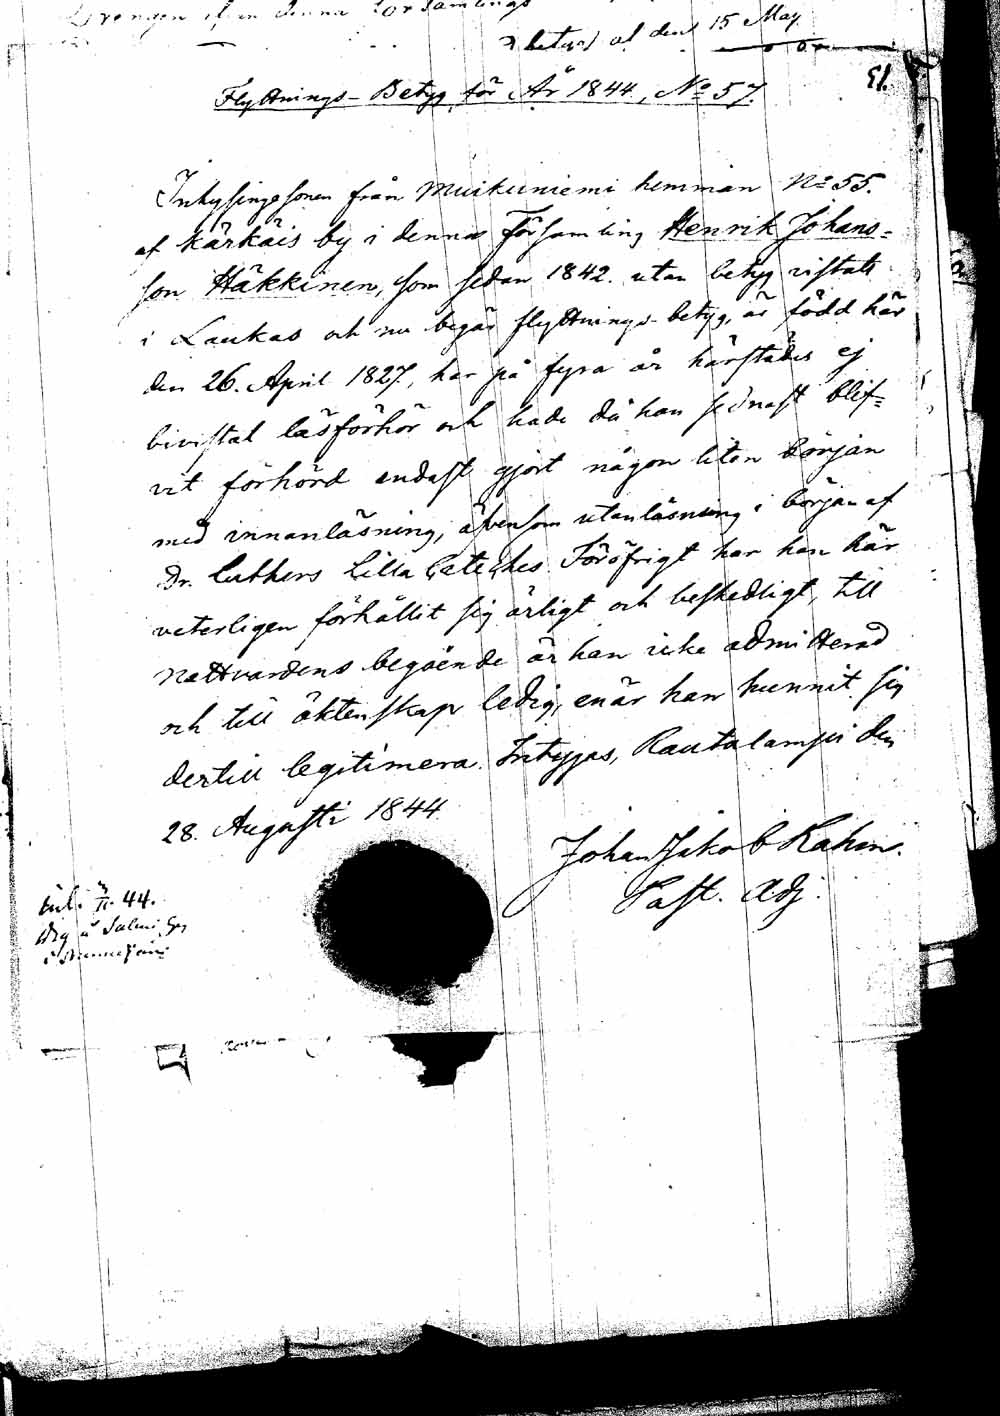 Drengen ifrån denna Församlings
betyg af den 15 May
51.
Flyttnings-Betyg för År 1844, No 57.
Inhysingesonen från Muikuniemi hemman No 55.
af Kärkäis by i denna Församling Henrik Johans=
son Häkkinen, som sedan 1842. utan betyg vistats
i Laukas och nu begär flyttnings-betyg, är född här
den 26. April 1827, har på fyra år härstädes ej
bivistat läsförhör och hade då han sednast blif=
vit förhörd endast gjort någon liten början
med innanläsning, äfvensom utanläsning i början af
Dr. Luthers Lilla Cateches. Föröfrigt har han här
veterligen förhållit sig ärligt och beskedligt, till
Nattvardens begående är han icke admitterad
och till äktenskap ledig, enär han hunnit sig
dertill legitimera. Intygas, Rautalampi den
28. Augusti 1844.
Johan Jakob Kahm.
Past. Adj.
44.
Salmi